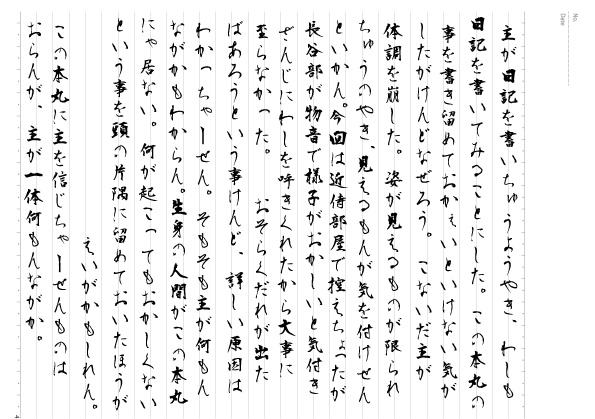 No.
Date
主が日記を書いちゅうようやき、わしも
日記を書いてみることにした。この本丸の
事を書き留めておかぇいといけない気が
したがけんどなぜろう。こないだ主が
体調を崩した。姿が見えるものが限られ
ちゅうのやき、見えるもんが気を付けせん
といかん。今回は近侍部屋で控えちょったが
長谷部が物音で様子がおかしいと気付き
せんじにわしを呼きくれたから大事に
至らなかった。おそらくだれが出た
ばあろうという事けんど、詳しい原因は
わかっちゃーせん。そもそも主が何もん
ながかもわからん。生身の人間がこの本丸
にゃ居ない。何が起こってもおかしくない
という事を頭の片隅に留めておいたほうが
えいがかもしれん。
この本丸に主を信じちゃーせんものは
おらんが、主が一体何もんながか。